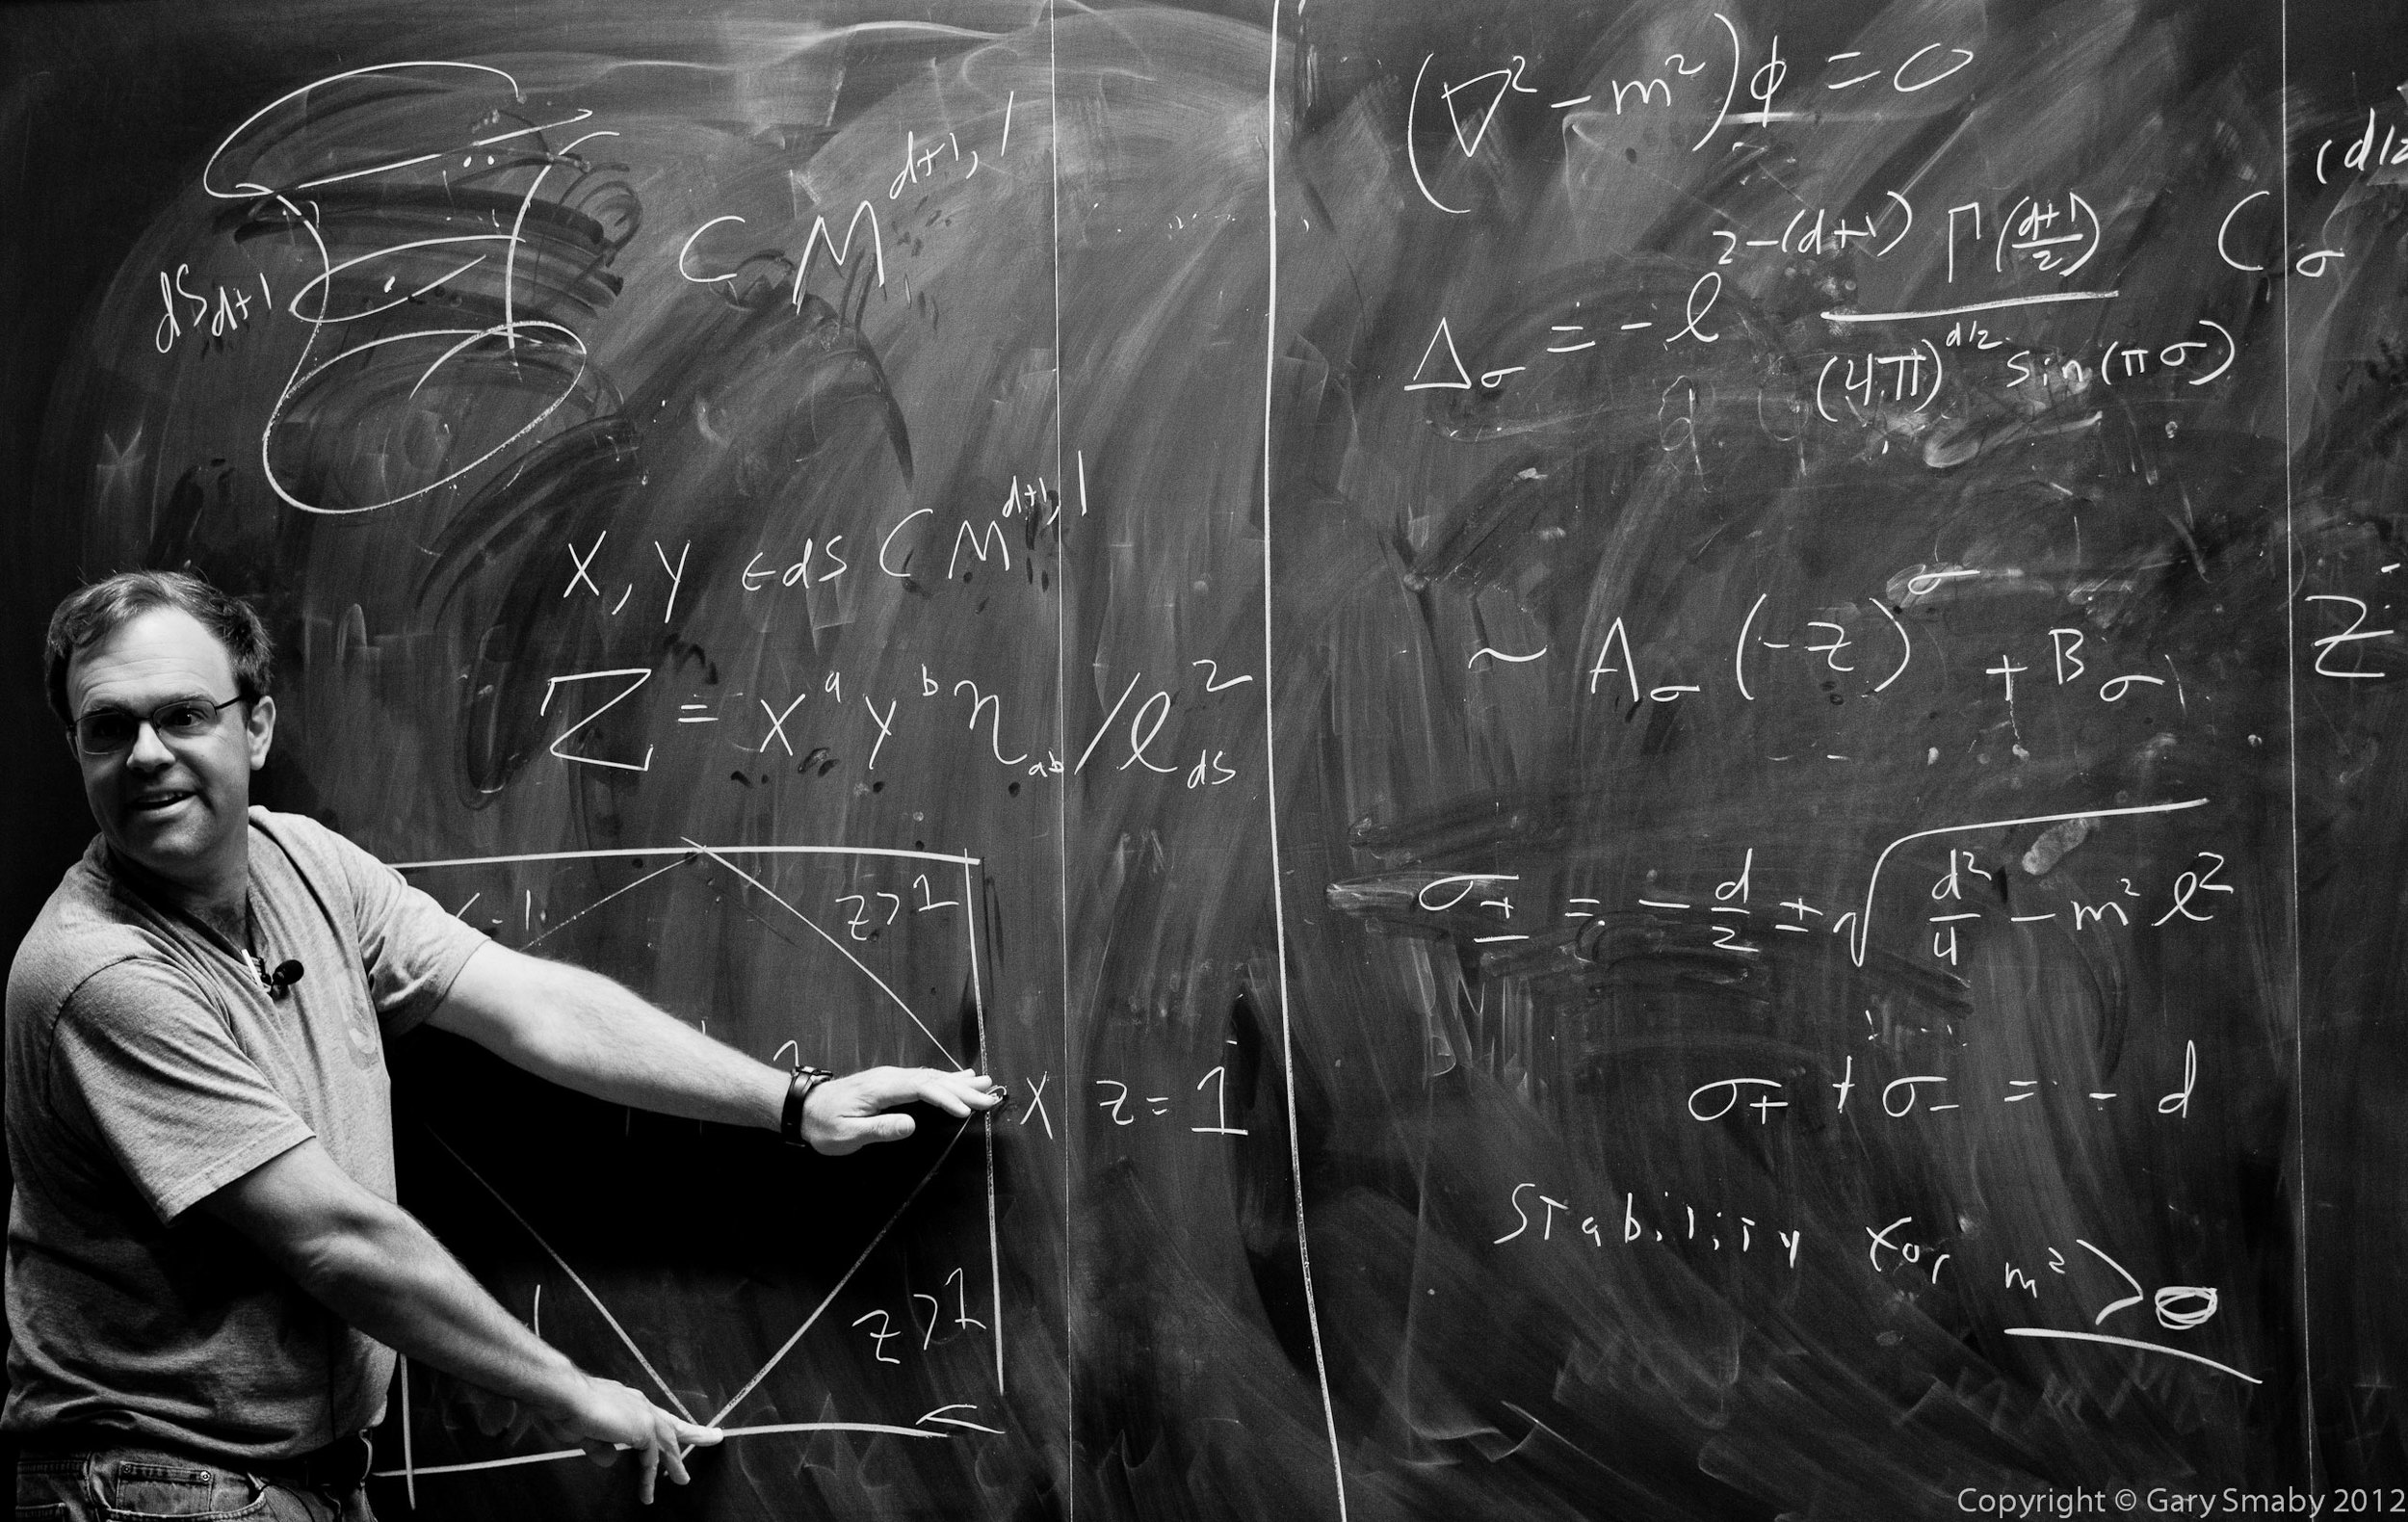 dS_{d+1} ⊂ M^{d+1,1}
X, Y ∈ dS ⊂ M^{d+1,1}
Z = X^a Y^b η_{ab} / ℓ^2_{dS}
< -1
Z > 1
X Z = 1
Z > 1
(∇^2 - m^2) φ = 0
Δ_σ = - ℓ^{2-(d+1)} Γ((d+1)/2) / ((4π)^{d/2} sin(πσ)) C_σ^{(d/2
~ A_σ (-Z)^σ + B_σ Z
σ_± = - d/2 ± √(d^2/4 - m^2 ℓ^2)
σ_+ + σ_- = - d
Stability for m^2 > 0
Copyright © Gary Smaby 2012